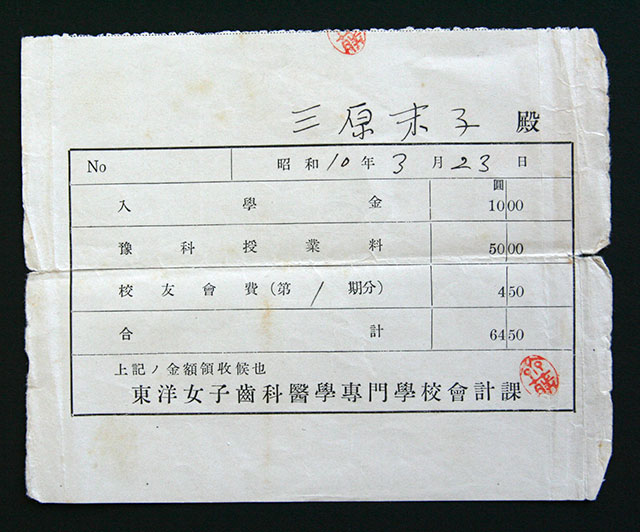 三原末子 殿
No 昭和10年3月23日
圓
入學金 10 00
豫科授業料 50 00
校友會費(第1期分) 4 50
合計 64 50
上記ノ金額領收候也
東洋女子齒科醫學專門學校會計課